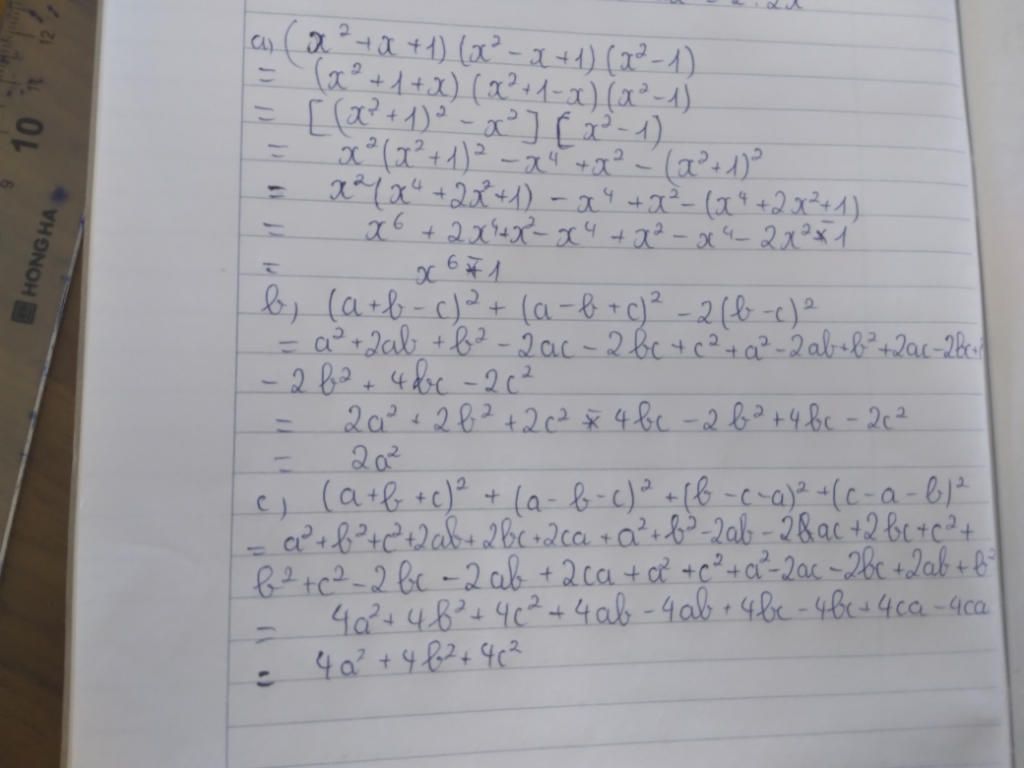 a) (x² + x + 1) (x² - x + 1) (x² - 1)
= (x² + 1 + x) (x² + 1 - x) (x² - 1)
= [(x² + 1)² - x²] [x² - 1)
= x² (x² + 1)² - x⁴ + x² - (x² + 1)²
= x² (x⁴ + 2x² + 1) - x⁴ + x² - (x⁴ + 2x² + 1)
= x⁶ + 2x⁴ + x² - x⁴ + x² - x⁴ - 2x² - 1
= x⁶ - 1
b, (a + b - c)² + (a - b + c)² - 2(b - c)²
= a² + 2ab + b² - 2ac - 2bc + c² + a² - 2ab + b² + 2ac - 2bc +
- 2b² + 4bc - 2c²
= 2a² + 2b² + 2c² - 4bc - 2b² + 4bc - 2c²
= 2a²
c, (a + b + c)² + (a - b - c)² + (b - c - a)² + (c - a - b)²
= a² + b² + c² + 2ab + 2bc + 2ca + a² + b² - 2ab - 2ac + 2bc + c² +
b² + c² - 2bc - 2ab + 2ca + a² + c² + a² - 2ac - 2bc + 2ab + b²
= 4a² + 4b² + 4c² + 4ab - 4ab + 4bc - 4bc + 4ca - 4ca
= 4a² + 4b² + 4c²
HONGHA
9 10 12